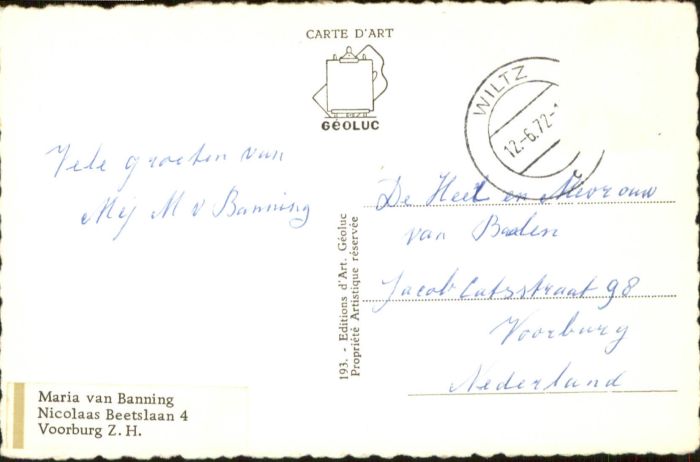 CARTE D'ART
GÉOLUC
WILTZ
12.-6.72-1
Vele groeten van
Mej M v Banning
De Heer en Mevrouw
van Baalen
Jacob Catsstraat 98
Voorburg
Nederland
193. - Editions d'Art. Géoluc
Propriété Artistique réservée
Maria van Banning
Nicolaas Beetslaan 4
Voorburg Z. H.